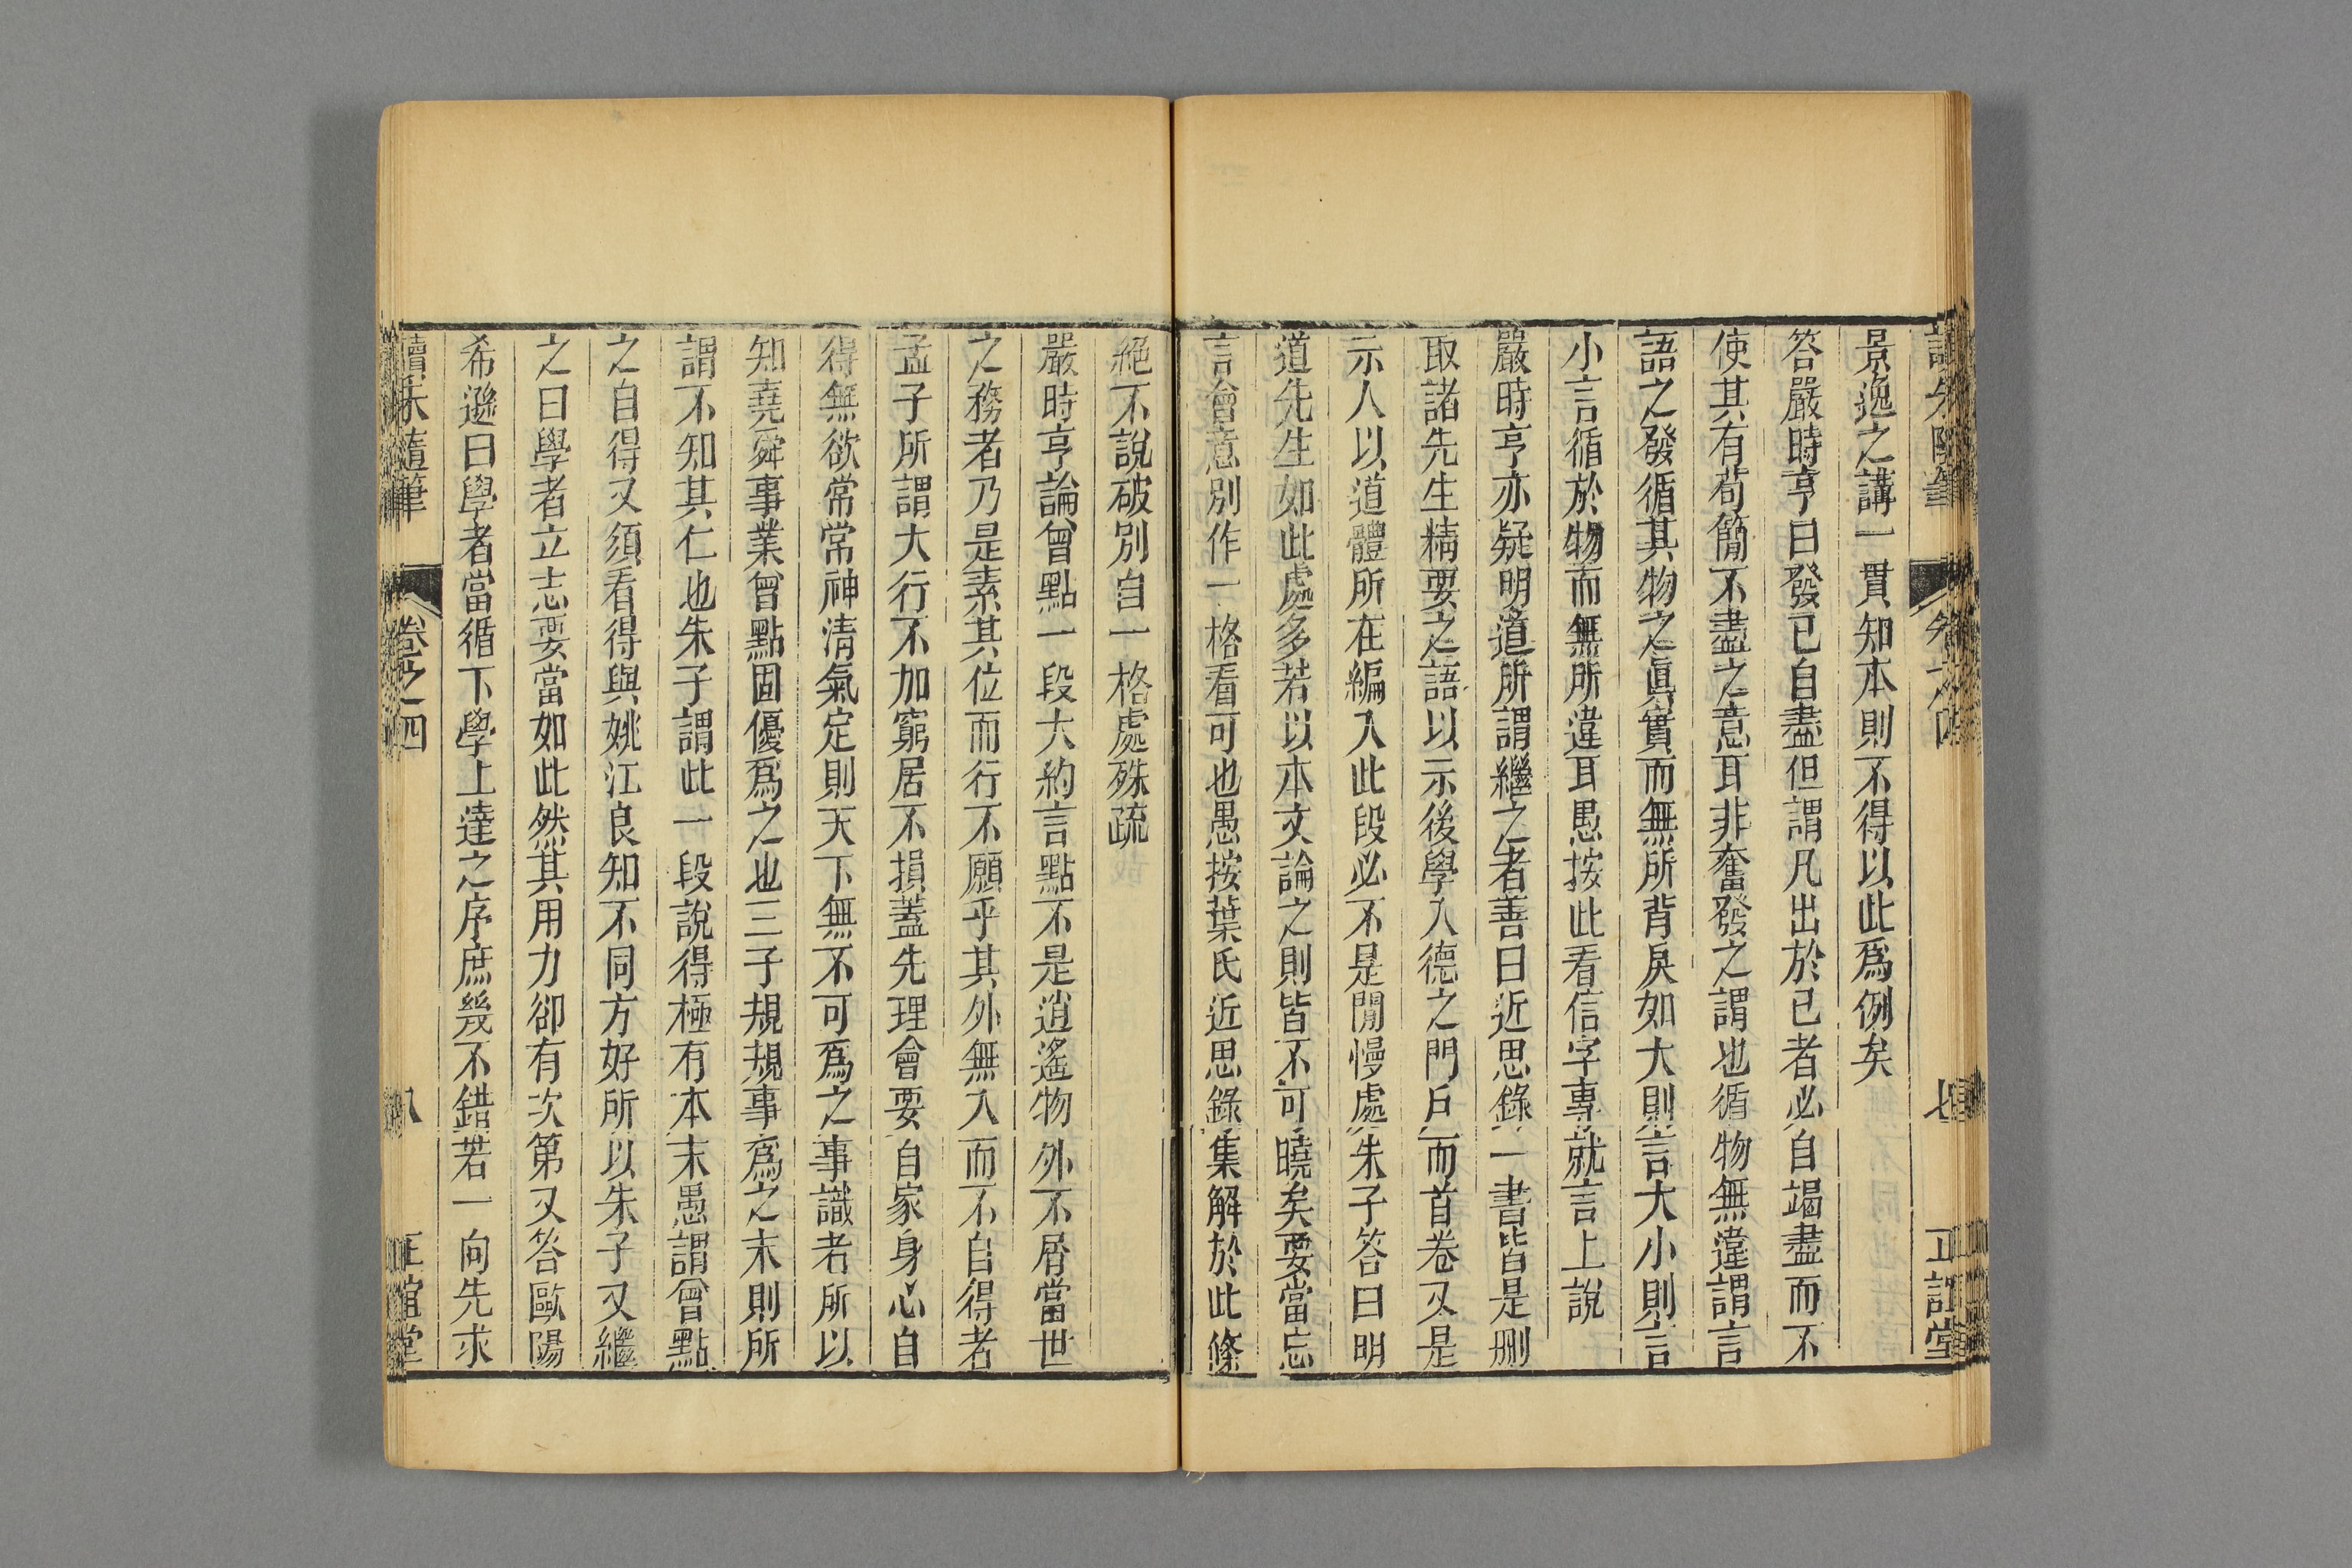 讀朱隨筆 卷之四 七 正誼堂
景逸之講一貫知本則不得以此爲例矣
答嚴時亨曰發已自盡但謂凡出於已者必自竭盡而不
使其有苟簡不盡之意耳非奮發之謂也循物無違謂言
語之發循其物之眞實而無所背戾如大則言大小則言
小言循於物而無所違耳愚按此看信字專就言上說
嚴時亨亦疑明道所謂繼之者善曰近思錄一書皆是刪
取諸先生精要之語以示後學入德之門戶而首卷又是
示人以道體所在編入此段必不是閒慢處朱子答曰明
道先生如此處多若以本文論之則皆不可曉矣要當忘
言會意別作一格看可也愚按葉氏近思錄集解於此條
絕不說破別自一格處殊疏
嚴時亨論曾點一段大約言點不是逍遙物外不屑當世
之務者乃是素其位而行不願乎其外無入而不自得者
孟子所謂大行不加窮居不損蓋先理會要自家身心自
得無欲常常神清氣定則天下無不可爲之事識者所以
知堯舜事業曾點固優爲之也三子規規事爲之末則所
謂不知其仁也朱子謂此一段說得極有本末愚謂曾點
之自得又須看得與姚江良知不同方好所以朱子又繼
之曰學者立志要當如此然其用力卻有次第又答歐陽
希遜曰學者當循下學上達之序庶幾不錯若一向先求
讀朱隨筆 卷之四 八 正誼堂